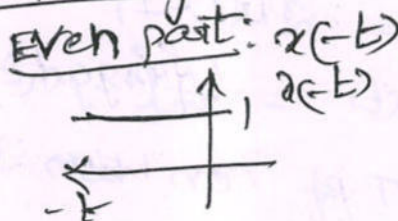 Even part: x(-t)
x(-t)
1
-t